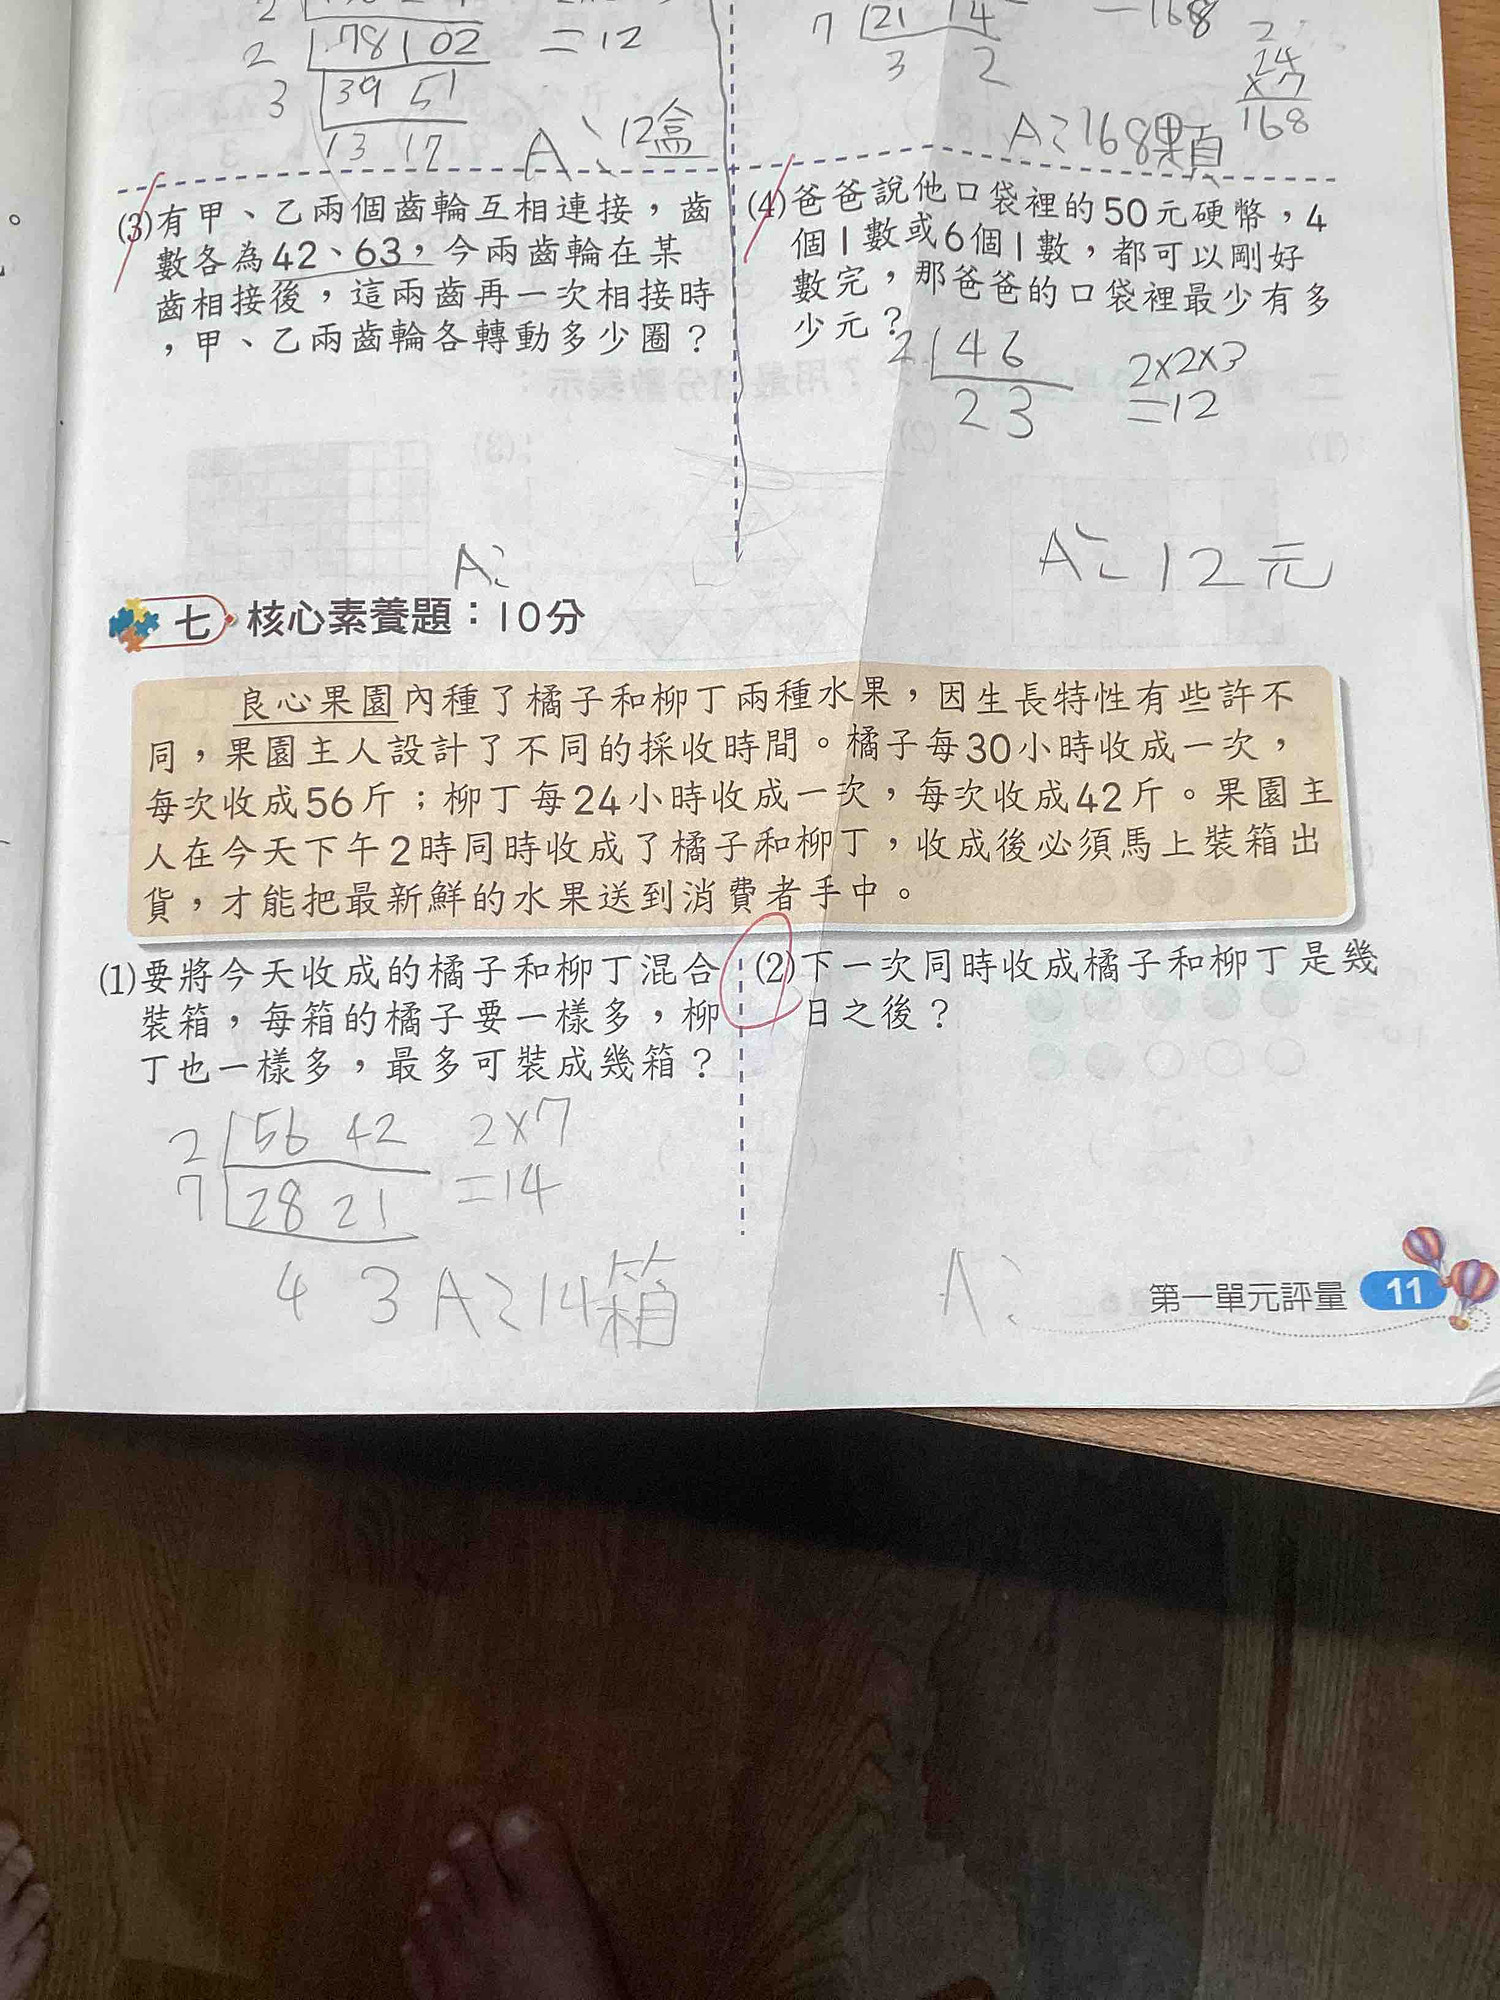 2 78 102 =12
3 39 51
13 17
A:12盒
7 21 14 -168
3 2
2
24
×7
168
A:168顆
(3)有甲、乙兩個齒輪互相連接，齒
數各為42、63，今兩齒輪在某
齒相接後，這兩齒再一次相接時
，甲、乙兩齒輪各轉動多少圈？
A:
(4)爸爸說他口袋裡的50元硬幣，4
個1數或6個1數，都可以剛好
數完，那爸爸的口袋裡最少有多
少元？
2 4 6 2×2×3
2 3 =12
A:12元
七 核心素養題：10分
良心果園內種了橘子和柳丁兩種水果，因生長特性有些許不
同，果園主人設計了不同的採收時間。橘子每30小時收成一次，
每次收成56斤；柳丁每24小時收成一次，每次收成42斤。果園主
人在今天下午2時同時收成了橘子和柳丁，收成後必須馬上裝箱出
貨，才能把最新鮮的水果送到消費者手中。
(1)要將今天收成的橘子和柳丁混合
裝箱，每箱的橘子要一樣多，柳
丁也一樣多，最多可裝成幾箱？
2 56 42 2×7
7 28 21 =14
4 3 A:14箱
(2)下一次同時收成橘子和柳丁是幾
日之後？
A:
第一單元評量 11